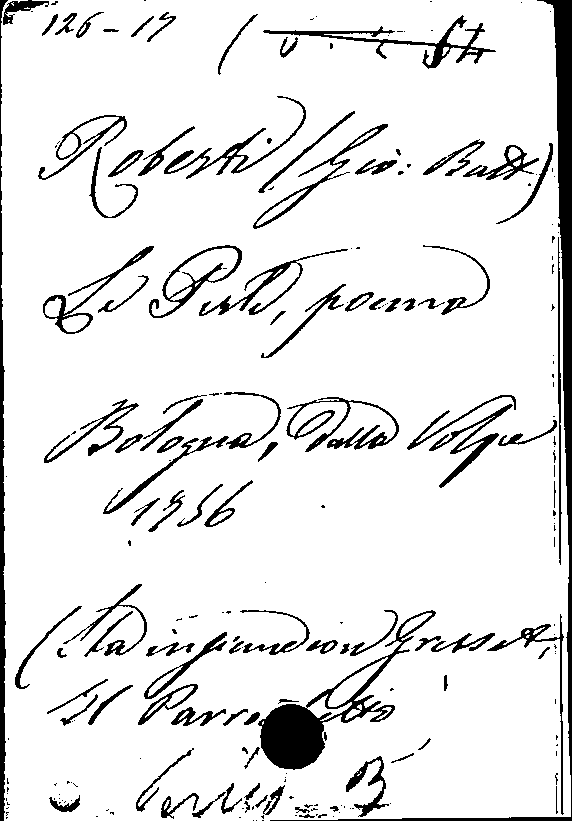 126-17
Roberti (Gio: Batt.)
Le Perle, poema
Bologna, Dalla Volpe
1756
(Sta insieme con Gresset,
Il Parrocchetto